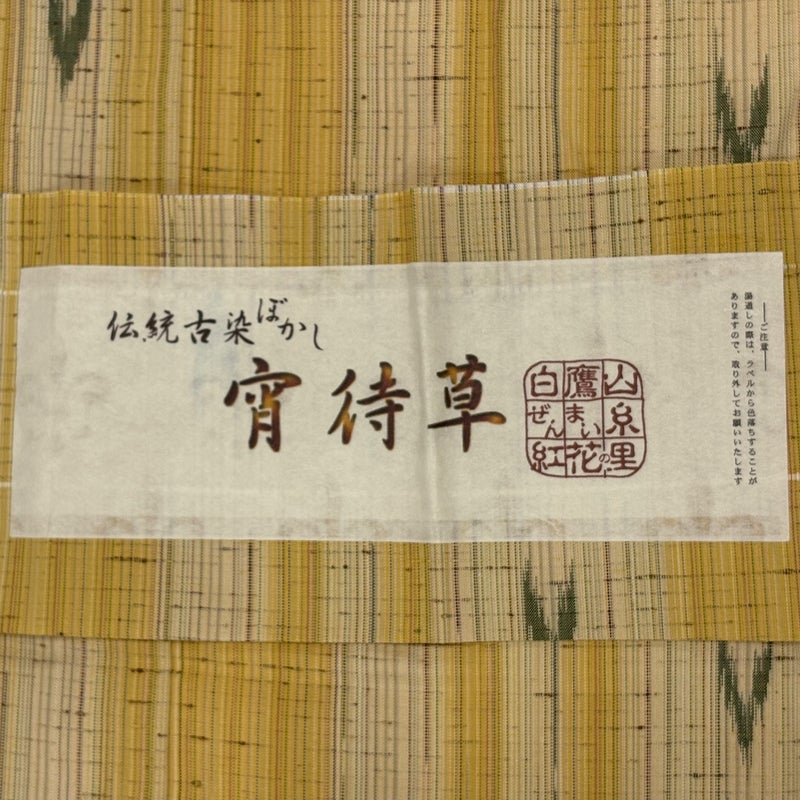 伝統古染ぼかし
宵待草
白鷹山
ぜんまい糸
紅花の里
―ご注意―
湯通しの際は、ラベルから色落ちすることが
ありますので、取り外してお願いいたします